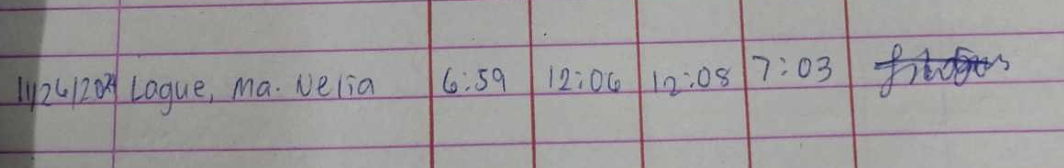 11/26/2024 Lague, Ma. Nelia 6:59 12:06 12:08 7:03